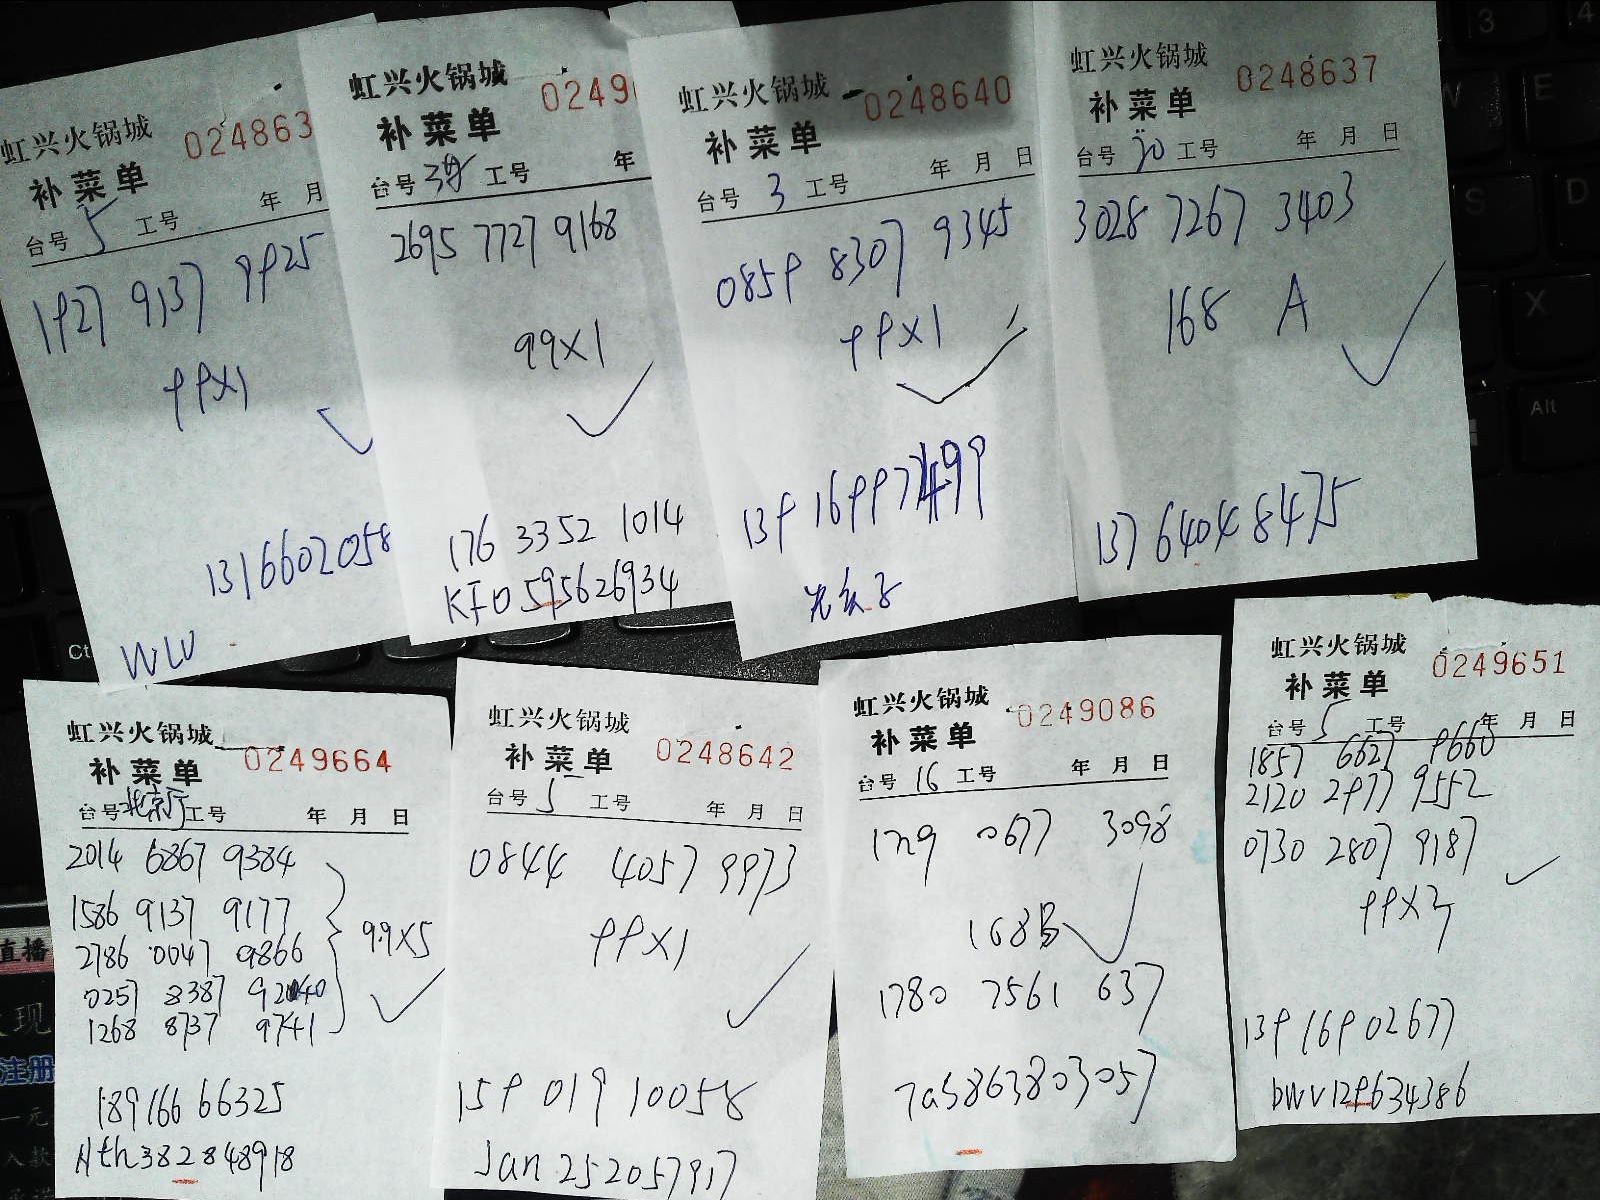 虹兴火锅城 024863
补菜单
台号 5 工号 年 月
1927 9137 9925
99X1
1316602058
WLV
虹兴火锅城 0249
补菜单
台号 工号 年
2695 7727 9168
99X1
176 3352 1014
KFD595626934
虹兴火锅城 0248640
补菜单
台号 3 工号 年 月 日
0859 8307 9345
99X1
139 16997 99
虹兴火锅城 0248637
补菜单
台号 30 工号 年 月 日
3028 7267 3403
168 A
137 6404 8475
虹兴火锅城 0249664
补菜单
台号 北京厅 工号 年 月 日
2014 6867 9384
1586 9137 9177
99X5
2786 0047 9866
0257 8387
1268 8737 9741
189166 66325
Hth382848918
虹兴火锅城 0248642
补菜单
台号 5 工号 年 月 日
0844 4057 9973
99X1
159 019 10058
Jan 252057917
虹兴火锅城 0249086
补菜单
台号 16 工号 年 月 日
1729 0677 3098
168B
1780 7561 637
7as863803057
虹兴火锅城 0249651
补菜单
台号 5 工号 年 月 日
1857 6627 9668
2120 2977 9552
0730 2807 9187
99X3
139 169 02677
bwv129634386
直播
现
注册
一元
入款
3
4
W
E
S
D
X
Alt
Ct